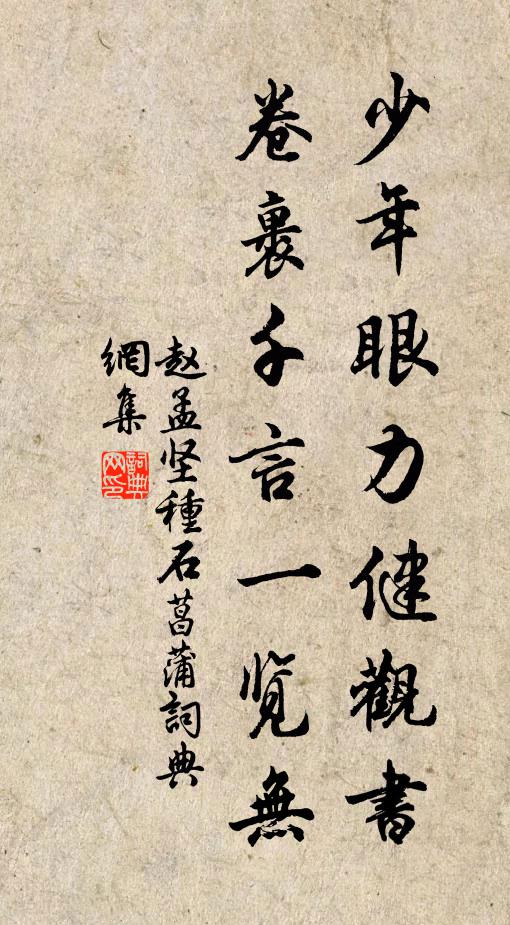 少年眼力健觀書
卷裏千言一览無
赵孟坚種石菖蒲詞典
網集
詞典網印